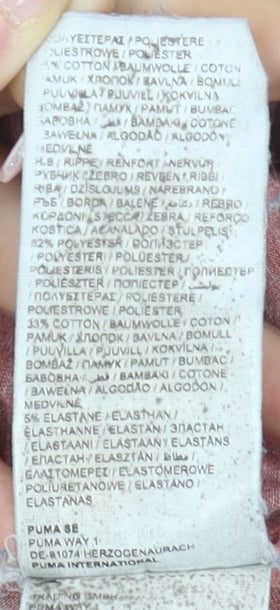 ΠΟΛΥΕΣΤΕΡΑΣ / POLIESTERE /
POLIESTROWE / POLIÉSTER
5% COTTON / BAUMWOLLE / COTON
PAMUK / ХЛОПОК / BAVLNA / BOMULL
PUUVILLA / PUUVILL / KOKVILNA
BOMBAŽ / ПАМУК / PAMUT / BUMBAC
ΒΑΒΟΒΗΑ / قطن / BAMBAKI / COTONE
BAWEŁNA / ALGODÃO / ALGODÓN
MEDVILNĖ
RIB / RIPPE / RENFORT NERVUR
РУБЧИК / ŽEBRO / REVBEN / RIBBI
RIBA / DZISLOJUMS / NAREBRANO /
РЪБ / BORDA / BALENE / REBRO
ΚΟΡΔΟΝΙ / STECCA / ZEBRA / REFORÇO
KOSTICA / ACANALADO / STULPELIS
62% POLYESTER / ПОЛИЭСТЕР
/ POLYESTERI / POLÜESTER /
POLIESTERIS / POLIESTER / ПОЛИЕСТЕР
/ POLIÉSZTER / ПОПІЕСТЕР / بوليستر
/ ΠΟΛΥΕΣΤΕΡΑΣ / POLIESTERE /
POLIESTROWE / POLIÉSTER
33% COTTON / BAUMWOLLE / COTON /
PAMUK / ХЛОПОК / BAVLNA / BOMULL
/ PUUVILLA / PUUVILL / KOKVILNA /
BOMBAŽ / ПАМУК / PAMUT / BUMBAC /
ΒΑΒΟΒΗΑ / قطن / BAMBAKI / COTONE
/ BAWEŁNA / ALGODÃO / ALGODÓN /
MEDVILNĖ
5% ELASTANE / ELASTHAN /
ELASTHANNE / ELASTAN / ЭЛАСТАН
/ ELASTAANI / ELASTAAN / ELASTĀNS
/ ЕЛАСТАН / ELASZTÁN / مطاط /
ΕΛΑΣΤΟΜΕΡΕΣ / ELASTOMEROWE
POLIURETANOWE / ELASTANO /
ELASTANAS
PUMA SE
PUMA WAY 1
DE-91074 HERZOGENAURACH
PUMA INTERNATIONAL
TRADING GMBH
PUMA WAY 1